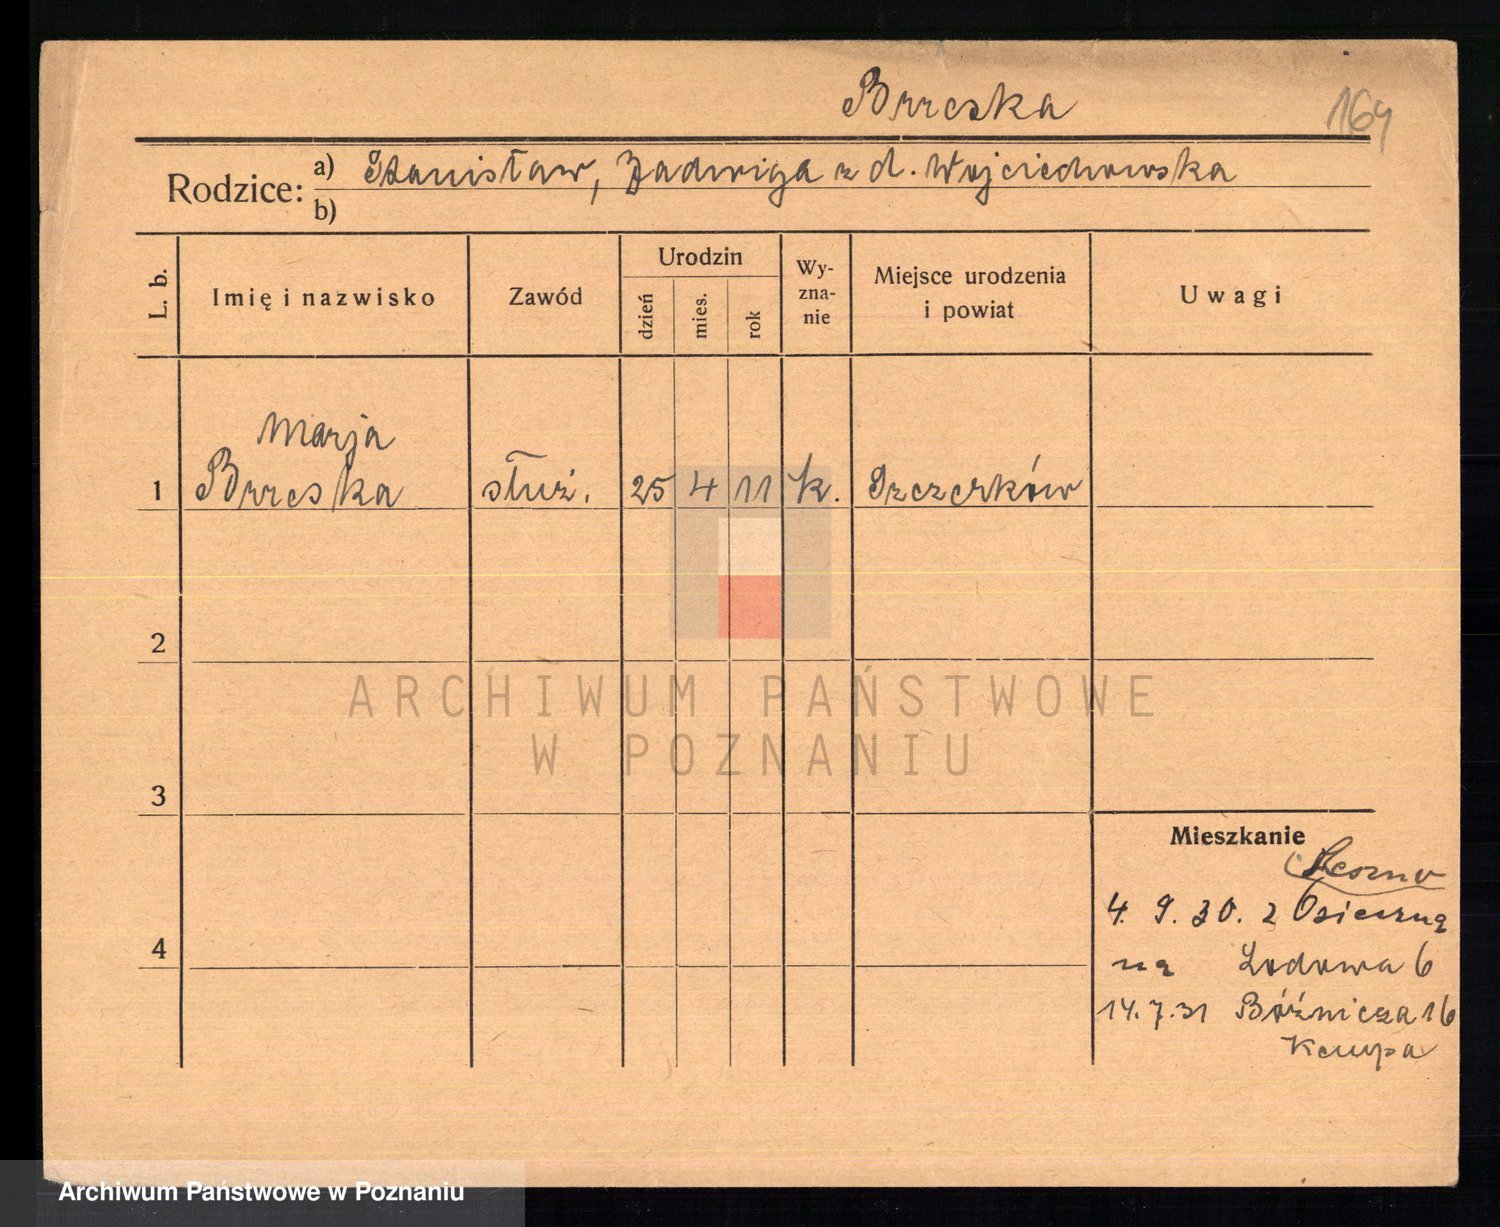 Brzeska
164
Rodzice: a) Stanisław, Jadwiga z d. Wojciechowska
b)
L. b.
Imię i nazwisko
Zawód
Urodzin
dzień
mies.
rok
Wy-
zna-
nie
Miejsce urodzenia
i powiat
Uwagi
Marja
1 Brzeska służ. 25 4 11 k. Szczerków
2
ARCHIWUM PAŃSTWOWE
W POZNANIU
3
Mieszkanie
Leszno
4. 9. 30. z Osieczną
4
na Lodowa 6
14. 7. 31 Bóźnicza 16
Kempa
Archiwum Państwowe w Poznaniu